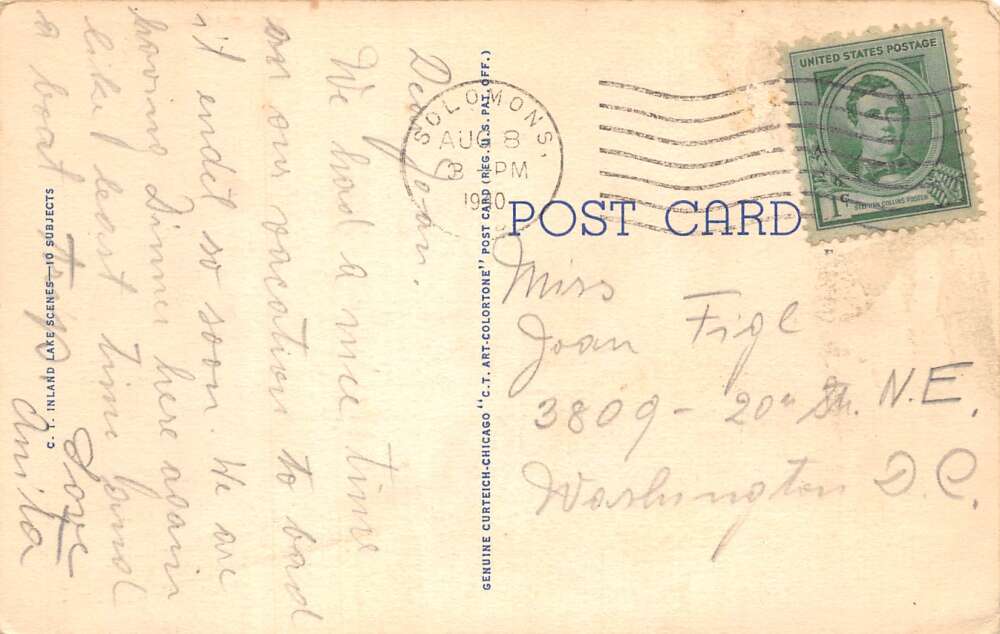 Dear Joan.
We had a nice time
on our vacation to bad
it endit so soon. We are
having Dinner here again
like least time and
a boat trip
Love
Anita
C. T. INLAND LAKE SCENES—10 SUBJECTS
GENUINE CURTEICH-CHICAGO "C.T. ART-COLORTONE" POST CARD (REG. U.S. PAT. OFF.)
SOLOMONS
AUG 8
3 PM
1940
UNITED STATES POSTAGE
1¢
STEPHEN COLLINS FOSTER
POST CARD
Miss
Joan Figl
3809 - 20th St. N.E.
Washington D.C.